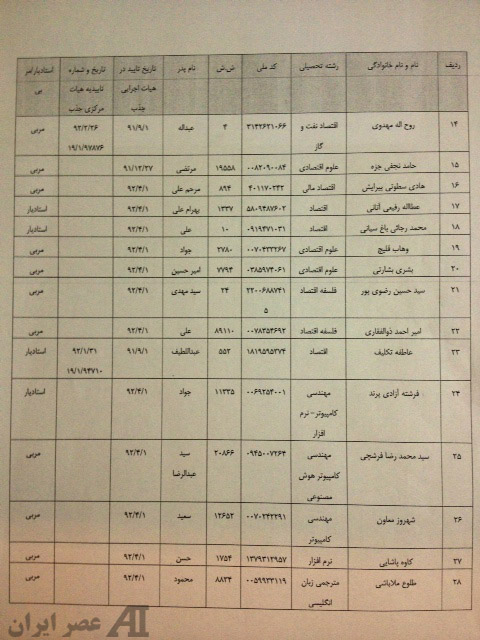 ردیف نام و نام خانوادگی رشته تحصیلی کد ملی ش.ش نام پدر تاریخ تایید در هیات اجرایی جذب تاریخ و شماره تاییدیه هیات مرکزی جذب استادیار/مربی
۱۴ روح اله مهدوی اقتصاد نفت و گاز ۳۱۴۲۶۲۱۰۶۶ ۳ عبداله ۹۱/۹/۱ ۹۲/۲/۲۶ ۱۹/۱/۹۷۸۷۶ مربی
۱۵ حامد نجفی جزه علوم اقتصادی ۰۰۸۲۰۹۰۰۸۴ ۱۹۵۵۸ مرتضی ۹۱/۱۲/۲۷ مربی
۱۶ هادی سطوتی بیرایش اقتصاد مالی ۴۰۱۱۷۰۲۴۲ ۸۹۴ مرحم علی ۹۲/۴/۱ مربی
۱۷ عطااله رفیعی آتانی اقتصاد ۵۸۰۹۴۸۷۶۰۲ ۱۳۳۷ بهرام علی ۹۲/۴/۱ استادیار
۱۸ محمد رجائی باغ سیائی اقتصاد ۰۹۱۹۴۷۱۰۳۱ ۱۰ علی ۹۲/۴/۱ استادیار
۱۹ وهاب قلیچ علوم اقتصادی ۰۰۷۰۴۳۳۲۶۷ ۲۷۸۰ جواد ۹۲/۴/۱ مربی
۲۰ بشری بشارتی علوم اقتصادی ۰۳۸۵۹۷۴۰۶۱ ۷۷۹۴ امیر حسین ۹۲/۴/۱ مربی
۲۱ سید حسین رضوی پور فلسفه اقتصاد ۲۲۰۰۶۸۸۷۴۱ ۵ ۲۴ سید مهدی ۹۲/۴/۱ مربی
۲۲ امیر احمد ذوالفقاری فلسفه اقتصاد ۰۰۷۸۳۵۴۶۹۲ ۸۹۱۱۰ علی ۹۲/۴/۱ مربی
۲۳ عاطفه تکلیف اقتصاد ۱۸۱۹۵۹۵۳۷۴ ۵۵۲ عبداللطیف ۹۱/۹/۱ ۹۲/۱/۳۱ ۱۹/۱/۹۴۷۱۰ استادیار
۲۴ فرشته آزادی پرند مهندسی کامپیوتر-نرم افزار ۰۰۶۹۲۵۳۰۰۱ ۱۱۳۳۵ جواد ۹۲/۴/۱ استادیار
۲۵ سید محمد رضا فرشچی مهندسی کامپیوتر هوش مصنوعی ۰۹۴۵۰۰۷۲۶۳ ۲۰۸۶۶ سید عبدالرضا ۹۲/۴/۱ مربی
۲۶ شهروز معاون مهندسی کامپیوتر ۰۰۷۰۲۴۲۲۹۱ ۱۲۶۵۲ سعید ۹۲/۴/۱ مربی
۲۷ کاوه پاشایی نرم افزار ۱۳۷۹۳۱۲۹۵۷ ۱۷۵۴ حسن ۹۲/۴/۱ مربی
۲۸ طلوع ملاباشی مترجمی زبان انگلیسی ۰۰۵۹۹۳۳۱۱۹ ۸۸۲۴ محمود ۹۲/۴/۱ مربی
عصر ایران